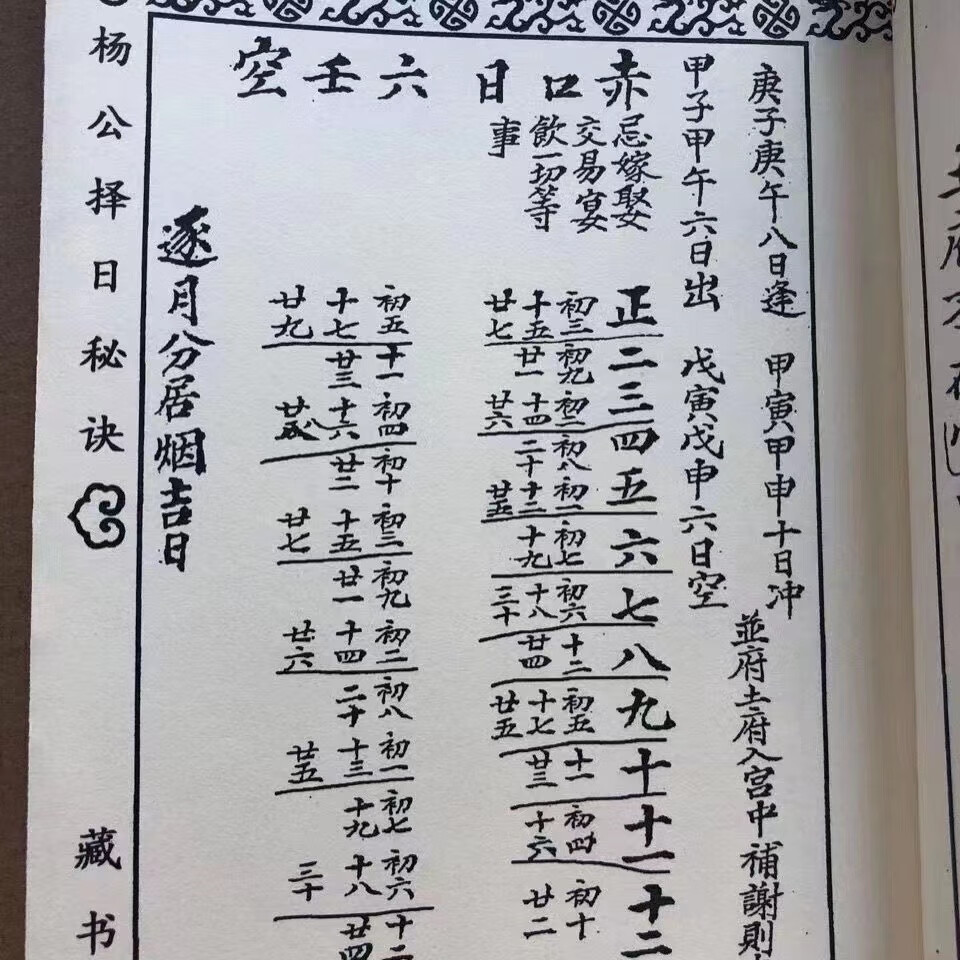 庚子庚午八日逢 甲寅甲申十日冲
並府土府入宫中 補謝則
甲子甲午六日出 戊寅戊申六日空
赤口日
忌嫁娶
交易宴
飲一切等
事
正 初三 十五 廿七
二 初九 廿一
三 初二 十四 廿六
四 初八 二十
五 初一 十三 廿五
六 初七 十九
七 初六 十八 三十
八 十二 廿四
九 初五 十七 廿五
十 十一 廿三
十一 初四 十六
十二 初十 廿二
六壬空
初五 十七 廿九
十一 廿三
初四 十六 廿八
初十 廿二
初三 十五 廿七
初九 廿一
初二 十四 廿六
初八 二十
初一 十三 廿五
初七 十九
初六 十八 三十
十二 廿四
逐月分居烟吉日
杨公择日秘诀 藏书